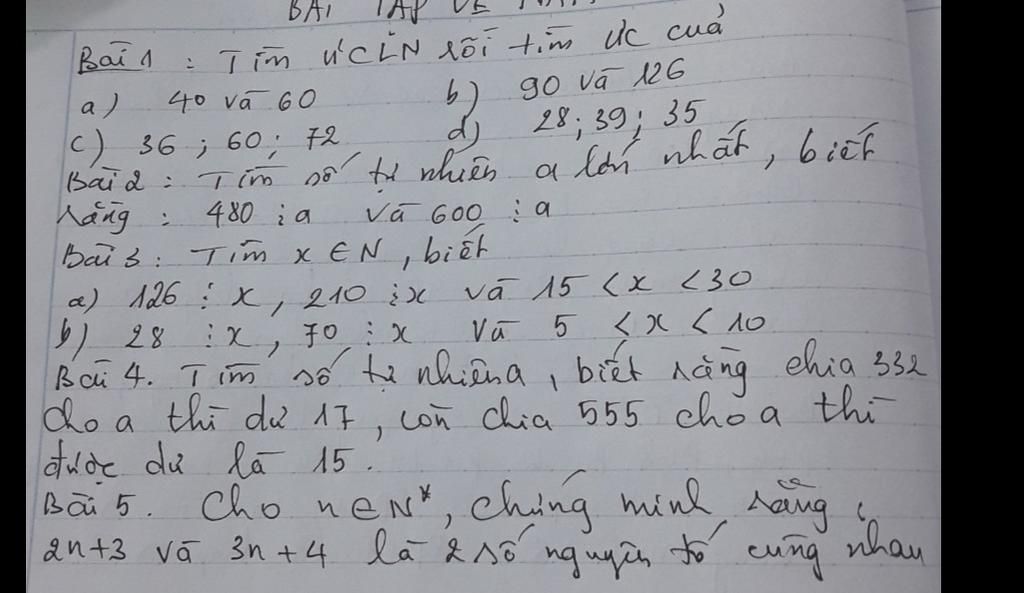 BÀI TẬP VỀ
Bài 1 : Tìm ƯCLN rồi tìm ƯC của
a) 40 và 60 b) 90 và 126
c) 36 ; 60 ; 72 d) 28 ; 39 ; 35
Bài 2 : Tìm số tự nhiên a lớn nhất, biết
rằng : 480 ⋮ a và 600 ⋮ a
Bài 3 : Tìm x ∈ N, biết
a) 126 ⋮ x, 210 ⋮ x và 15 < x < 30
b) 28 ⋮ x, 70 ⋮ x và 5 < x < 10
Bài 4. Tìm số tự nhiên a, biết rằng chia 332
cho a thì dư 17, còn chia 555 cho a thì
được dư là 15.
Bài 5. Cho n ∈ N*, chứng minh rằng :
2n+3 và 3n+4 là 2 số nguyên tố cùng nhau